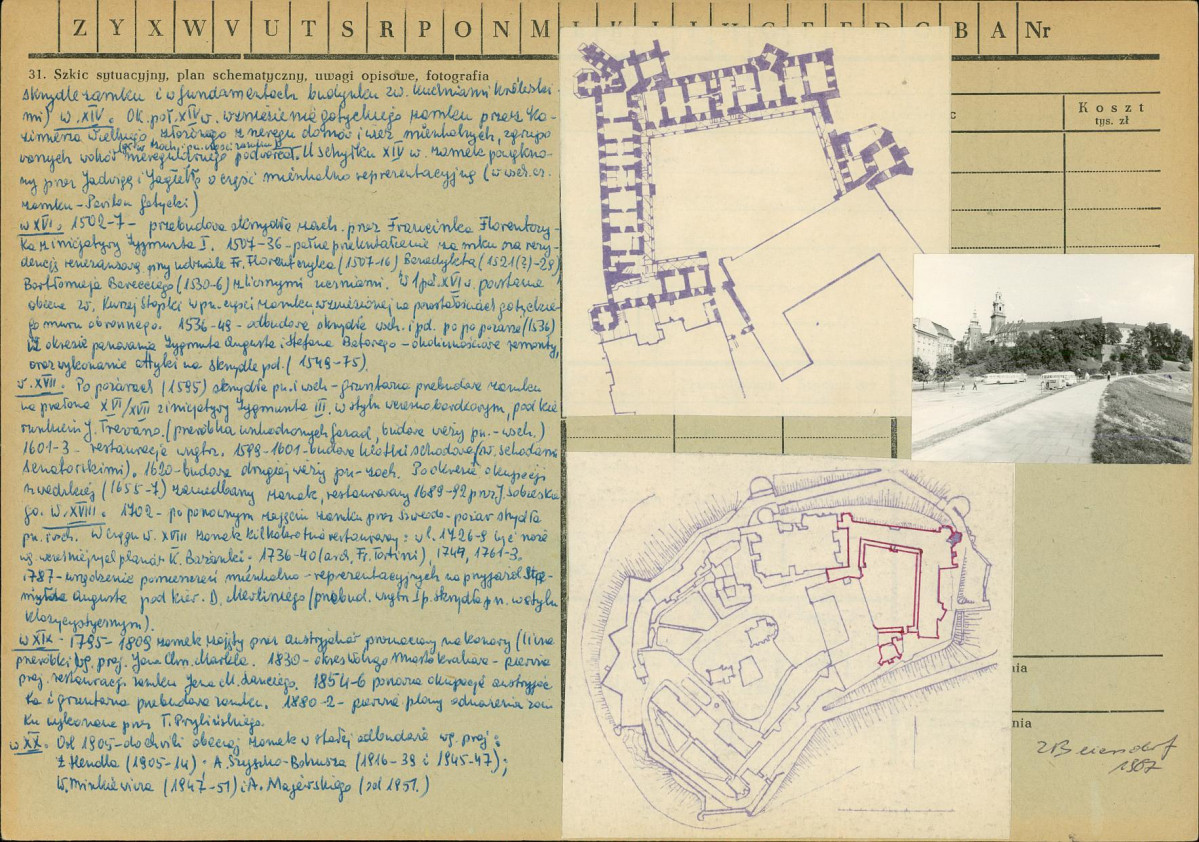 Z Y X W V U T S R P O N M Ł L K J I H G F E D C B A Nr
31. Szkic sytuacyjny, plan schematyczny, uwagi opisowe, fotografia
Koszt
tys. zł
skrzydle zamku i w fundamentach budynku zw. kuchniami królewski-
mi) w. XIV. Ok. poł. XIV w. wzniesienie gotyckiego zamku przez Ka-
zimierza Wielkiego, złożonego z szeregu domów i wież mieszkalnych, zgrupo
wanych wokół nieregularnego podwórca. U schyłku XIV w. zamek powiększo-
ny przez Jadwigę i Jagiełłę o część mieszkalno reprezentacyjną (w wsch. cz.
zamku - Pawilon Gotycki)
w XVI. 1502-7 - przebudowa skrzydła zach. przez Franciszka Florentczy-
ka z inicjatywy Zygmunta I. 1507-36 - pełne przekształcenie zamku na rezy-
dencję renesansową przy udziale Fr. Florentczyka (1507-16) Benedykta (1521(?)-29)
Bartłomieja Berecciego (1530-6) z licznymi uczniami. W 1 poł. XVI w. powstanie
obecne zw. Kurzej Stopki w pn. części zamku, wzniesionej na pozostałościach gotyckie
go muru obronnego. 1536-49 - odbudowa skrzydła wsch. i pd. po pożarze (1536)
W okresie panowania Zygmunta Augusta i Stefana Batorego - okolicznościowe remonty,
oraz wykonanie attyki na skrzydle pd. (1549-75).
w. XVII. Po pożarach (1595) skrzydła pn. i wsch - gruntowna przebudowa zamku
na przełomie XVI/XVII z inicjatywy Zygmunta III. w stylu wczesno barokowym, pod kie
runkiem J. Trevano. (przeróbka wschodnich fasad, budowa wieży pn.-wsch.)
1601-3 - restauracja wnętrz. 1599-1601 - budowa klatki schodowej (zw. schodami
senatorskimi). 1620 - budowa drugiej wieży pn-zach. Po okresie okupacji
szwedzkiej (1655-7) zaniedbany zamek, restaurowany 1689-92 przez J. Sobieskie
go. W. XVIII. 1702 - po ponownym zajęciu zamku przez Szwedów - pożar skrzydła
pn. i zach. W ciągu w. XVIII zamek kilkakrotnie restaurowany: w l. 1726-9 być może
wg wcześniejszych planów K. Bażanki; 1736-40 (arch. Fr. Torrini), 1747, 1761-3.
1787 - urządzenie pomieszczeń mieszkalno-reprezentacyjnych na przyjazd Sta-
nisława Augusta pod kier. D. Merliniego (przebud. wnętrz I p. skrzydła pn. w stylu
klasycystycznym).
w XIX - 1795-1809 zamek zajęty przez austryjaków przeznaczony na koszary (liczne
przeróbki wg. proj. Jana Chn. Markla. 1830 - okres Wolnego Miasta Krakowa - pierwsze
proj. restauracji zamku Jana M. Lanciego. 1854-6 ponowna okupacja austryjac
ka i gruntowna przebudowa zamku. 1880-2 - pierwsze plany odnowienia zam
ku wykonane przez T. Prylińskiego.
w XX. Od 1905 - do chwili obecnej zamek w stałej odbudowie wg. proj:
Z. Hendla (1905-14); A. Szyszko-Bohusza (1916-39 i 1945-47);
W. Minkiewicza (1947-51) i A. Majewskiego (od 1951.)
nia
nia
Z Beiersdorf
1967